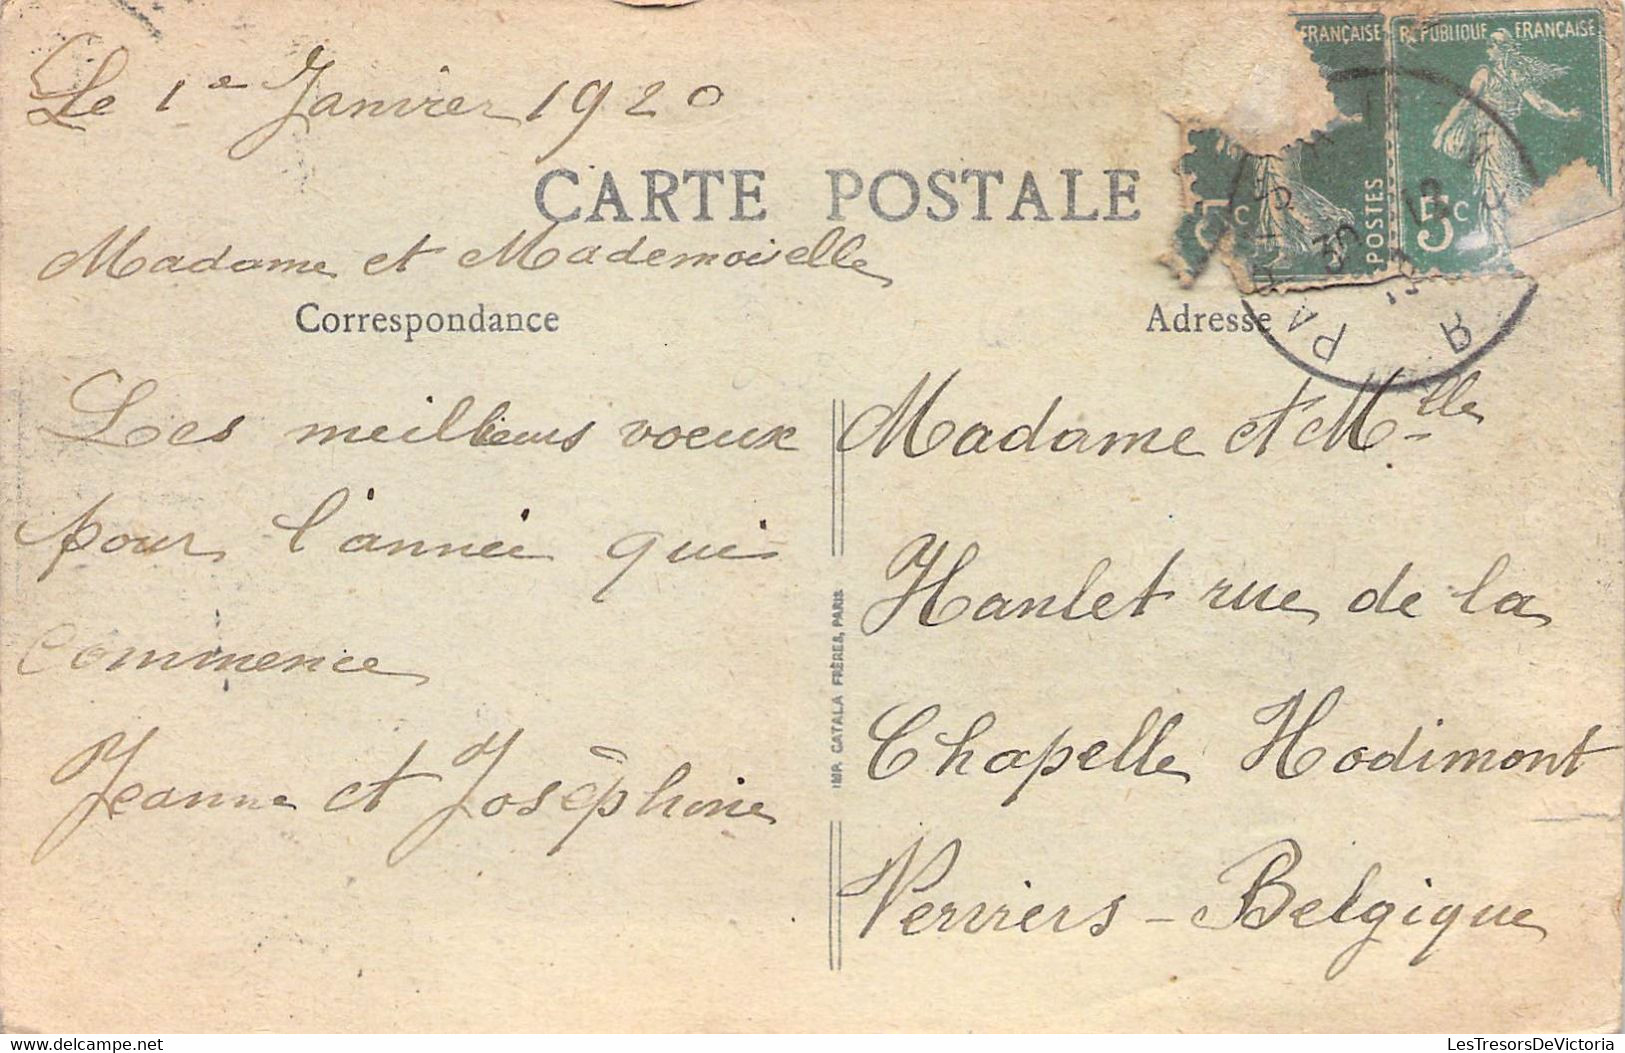 Le 1e Janvier 1920
FRANÇAISE
POSTES
5c
REPUBLIQUE FRANÇAISE
5c
CARTE POSTALE
Madame et Mademoiselle
Correspondance
Les meilleurs voeux
pour l'année qui
commence
Jeanne et Josèphine
IMP. CATALA FRÈRES, PARIS
Adresse
Madame et Mlle
Hanlet rue de la
Chapelle Hodimont
Verviers - Belgique
LesTresorsDeVictoria